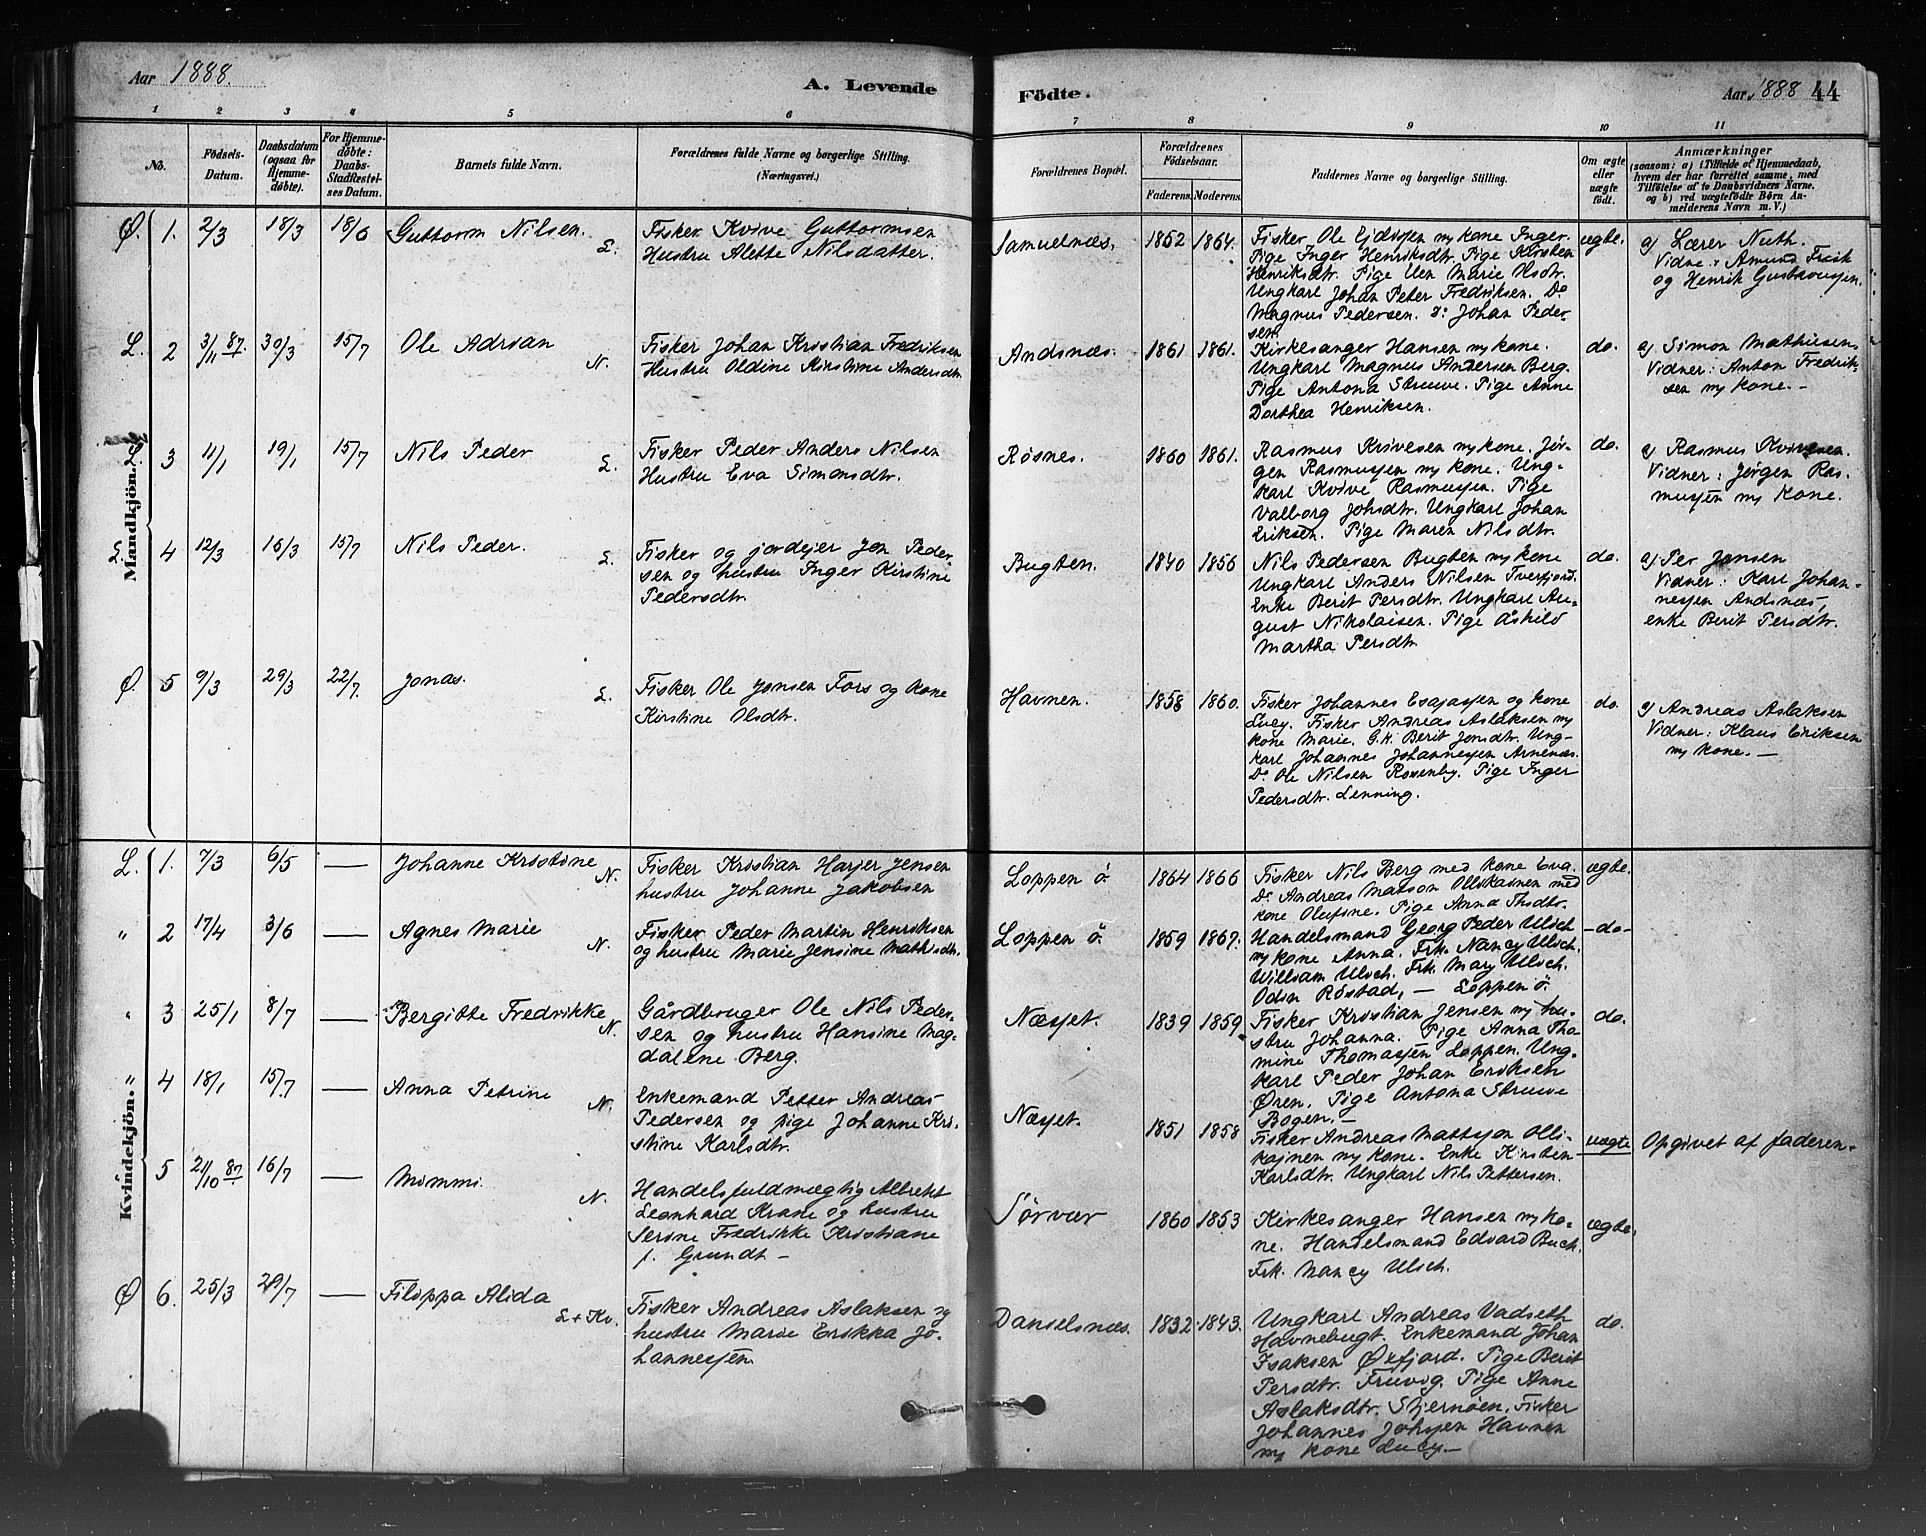 Aar 1888.
A. Levende
Födte.
Aar 1888 44
1 2 3 4 5 6 7 8 9 10 11
No.
Födsels-
Datum.
Daabsdatum
(ogsaa for
Hjemme-
döbte).
For Hjemme-
döbte:
Daabs-
Stadfæstel-
ses Datum.
Barnets fulde Navn.
Forældrenes fulde Navne og borgerlige Stilling.
(Næringsvei.)
Forældrenes Bopæl.
Forældrenes
Födselsaar.
Faderens. Moderens.
Faddernes Navne og borgerlige Stilling.
Om ægte
eller
uægte
födt.
Anmærkninger
(saasom: a) i Tilfælde af Hjemmedaab,
hvem der har forrettet samme, med
Tilföielse af to Daabsvidners Navne.
og b) ved uægtefödte Börn An-
melderens Navn m. V.)
Mandkjön.
Ø. 1. 2/3 18/3 18/6 Guttorm Nilsen. L.
Fisker Kvive Guttormsen
Hustru Alette Nilsdatter.
Samuelnæs. 1852 1864.
Fisker Ole Ejdersen m/ kone Inger.
Pige Inger Henriksdtr. Pige Kirsten
Henriksdtr. Pige Elen Marie Olsdtr.
Ungkarl Johan Peter Fredriksen. Do
Magnus Pedersen. Do Johan Peder-
sen.
ægte.
a) Lærer Nuth.
Vidne: Amund Frisk
og Henrik Gustavussen.
L. 2 3/11 87. 30/3 15/7 Ole Adrian N.
Fisker Johan Kristian Fredriksen
Hustru Oldine Kirstine Andersdtr.
Andsnæs. 1861 1861.
Kirkesanger Hansen m/ kone.
Ungkarl Magnus Andersen Berg.
Pige Antona Struwe. Pige Anne
Dorthea Henriksen.
do.
a) Simon Mathiesen
Vidner: Anton Fredrik-
sen m/ kone. -
L. 3 11/1 19/1 15/7 Nils Peder L.
Fisker Peder Anders Nilsen
Hustru Eva Simonsdtr.
Røsnes. 1860 1861.
Rasmus Krivesen m/ kone. Jør-
gen Rasmussen m/ kone. Ung-
karl Kvive Rasmussen. Pige
Valborg Johsdtr. Ungkarl Johan
Eriksen. Pige Maren Nilsdtr.
do.
a) Rasmus Kvivesen.
Vidner: Jørgen Ras-
mussen m/ kone.
L. 4 12/3 16/3 15/7 Nils Peder. L.
Fisker og jordejer Jon Peder
sen og hustru Inger Kirstine
Pedersdtr.
Bugten. 1840 1856
Nils Pedersen Bugten m/ kone
Ungkarl Anders Nilsen Tverfjord.
Enke Berit Persdtr. Ungkarl Au-
gust Nikolaisen. Pige Åshild
Martha Persdtr
do.
a) Per Jonsen
Vidner: Karl Johan-
nessen Andsnæs,
enke Berit Persdtr.
Ø. 5 9/3 29/3 22/7. Jonas. L.
Fisker Ole Jonsen Fors og kone
Kirstine Olsdtr.
Havnen. 1858 1860.
Fisker Johannes Esajassen og kone
Lucy. Fisker Andreas Aslaksen m/
kone Marie. G.k. Berit Jonsdtr. Ung-
karl Johannes Johannessen Arnenæs.
Do Ole Nilsen Rosenby. Pige Inger
Pedersdtr. Lenning.
do.
a) Andreas Aslaksen
Vidner: Klaus Eriksen
m/ kone. -
Kvindekjön.
L. 1. 7/3 6/5 — Johanne Kristine N.
Fisker Kristian Hartjer Jensen
hustru Johanne Jakobsen
Loppen ö. 1864 1866
Fisker Nils Berg med kone Eva.
Do Andreas Matson Ollikainen med
kone Olufine. Pige Anna Thsdtr.
ægte.
" 2 17/4 3/6 — Agnes Marie N.
Fisker Peder Martin Henriksen
og hustru Marie Jensine Mathisdtr.
Loppen ö. 1859 1867.
Handelsmand Georg Peder Ulich
m/ kone Anna. Frk. Nancy Ulich.
William Ulich. Frk. Mary Ulich.
Odin Röstad, — Loppen ö.
-do-
" 3 25/1 8/7 — Bergitte Fredrikke N.
Gårdbruger Ole Nils Peder-
sen og hustru Hansine Mag-
dalene Berg.
Næsset. 1839 1859
Fisker Kristian Jensen m/ hu-
stru Johanna. Pige Anna Tho
mine Thomassen Loppen. Ung-
karl Peder Johan Eriksen
Øren. Pige Antona Struwe
Bogen. -
do.
" 4 18/1 15/7 — Anna Petrine N.
Enkemand Petter Andreas
Pedersen og pige Johanne Kri-
stine Karlsdtr.
Næsset. 1851 1858
Fisker Andreas Mattson Olli-
kajnen m/ kone. Enke Kirsten
Karlsdtr. Ungkarl Nils Pettersen.
uægte Opgivet af faderen-
5 21/10 87 16/7 — Mimmi. N.
Handelsfuldmægtig Albrekt
Leonhard Krane og hustru
Serine Fredrikke Kristiane
f. Grundt -
Sørvær 1860 1853
Kirkesanger Hansen m/ ko-
ne. Handelsmand Edvard Buck.
Frk. Nancy Ulich.
ægte.
Ø 6. 25/3 29/7 — Filippa Alida L + Kv.
Fisker Andreas Aslaksen og
hustru Marie Erikka Jo-
hannessen.
Danielsnæs. 1832 1843.
Ungkarl Andreas Vadseth
Havnebugt. Enkemand Johan
Isaksen Øxfjord. Pige Berit
Persdtr. Fruvig. Pige Anne
Aslaksdtr. Stjernöen. Fisker
Johannes Johsen Havnen
m/ kone Lucy.-
do.